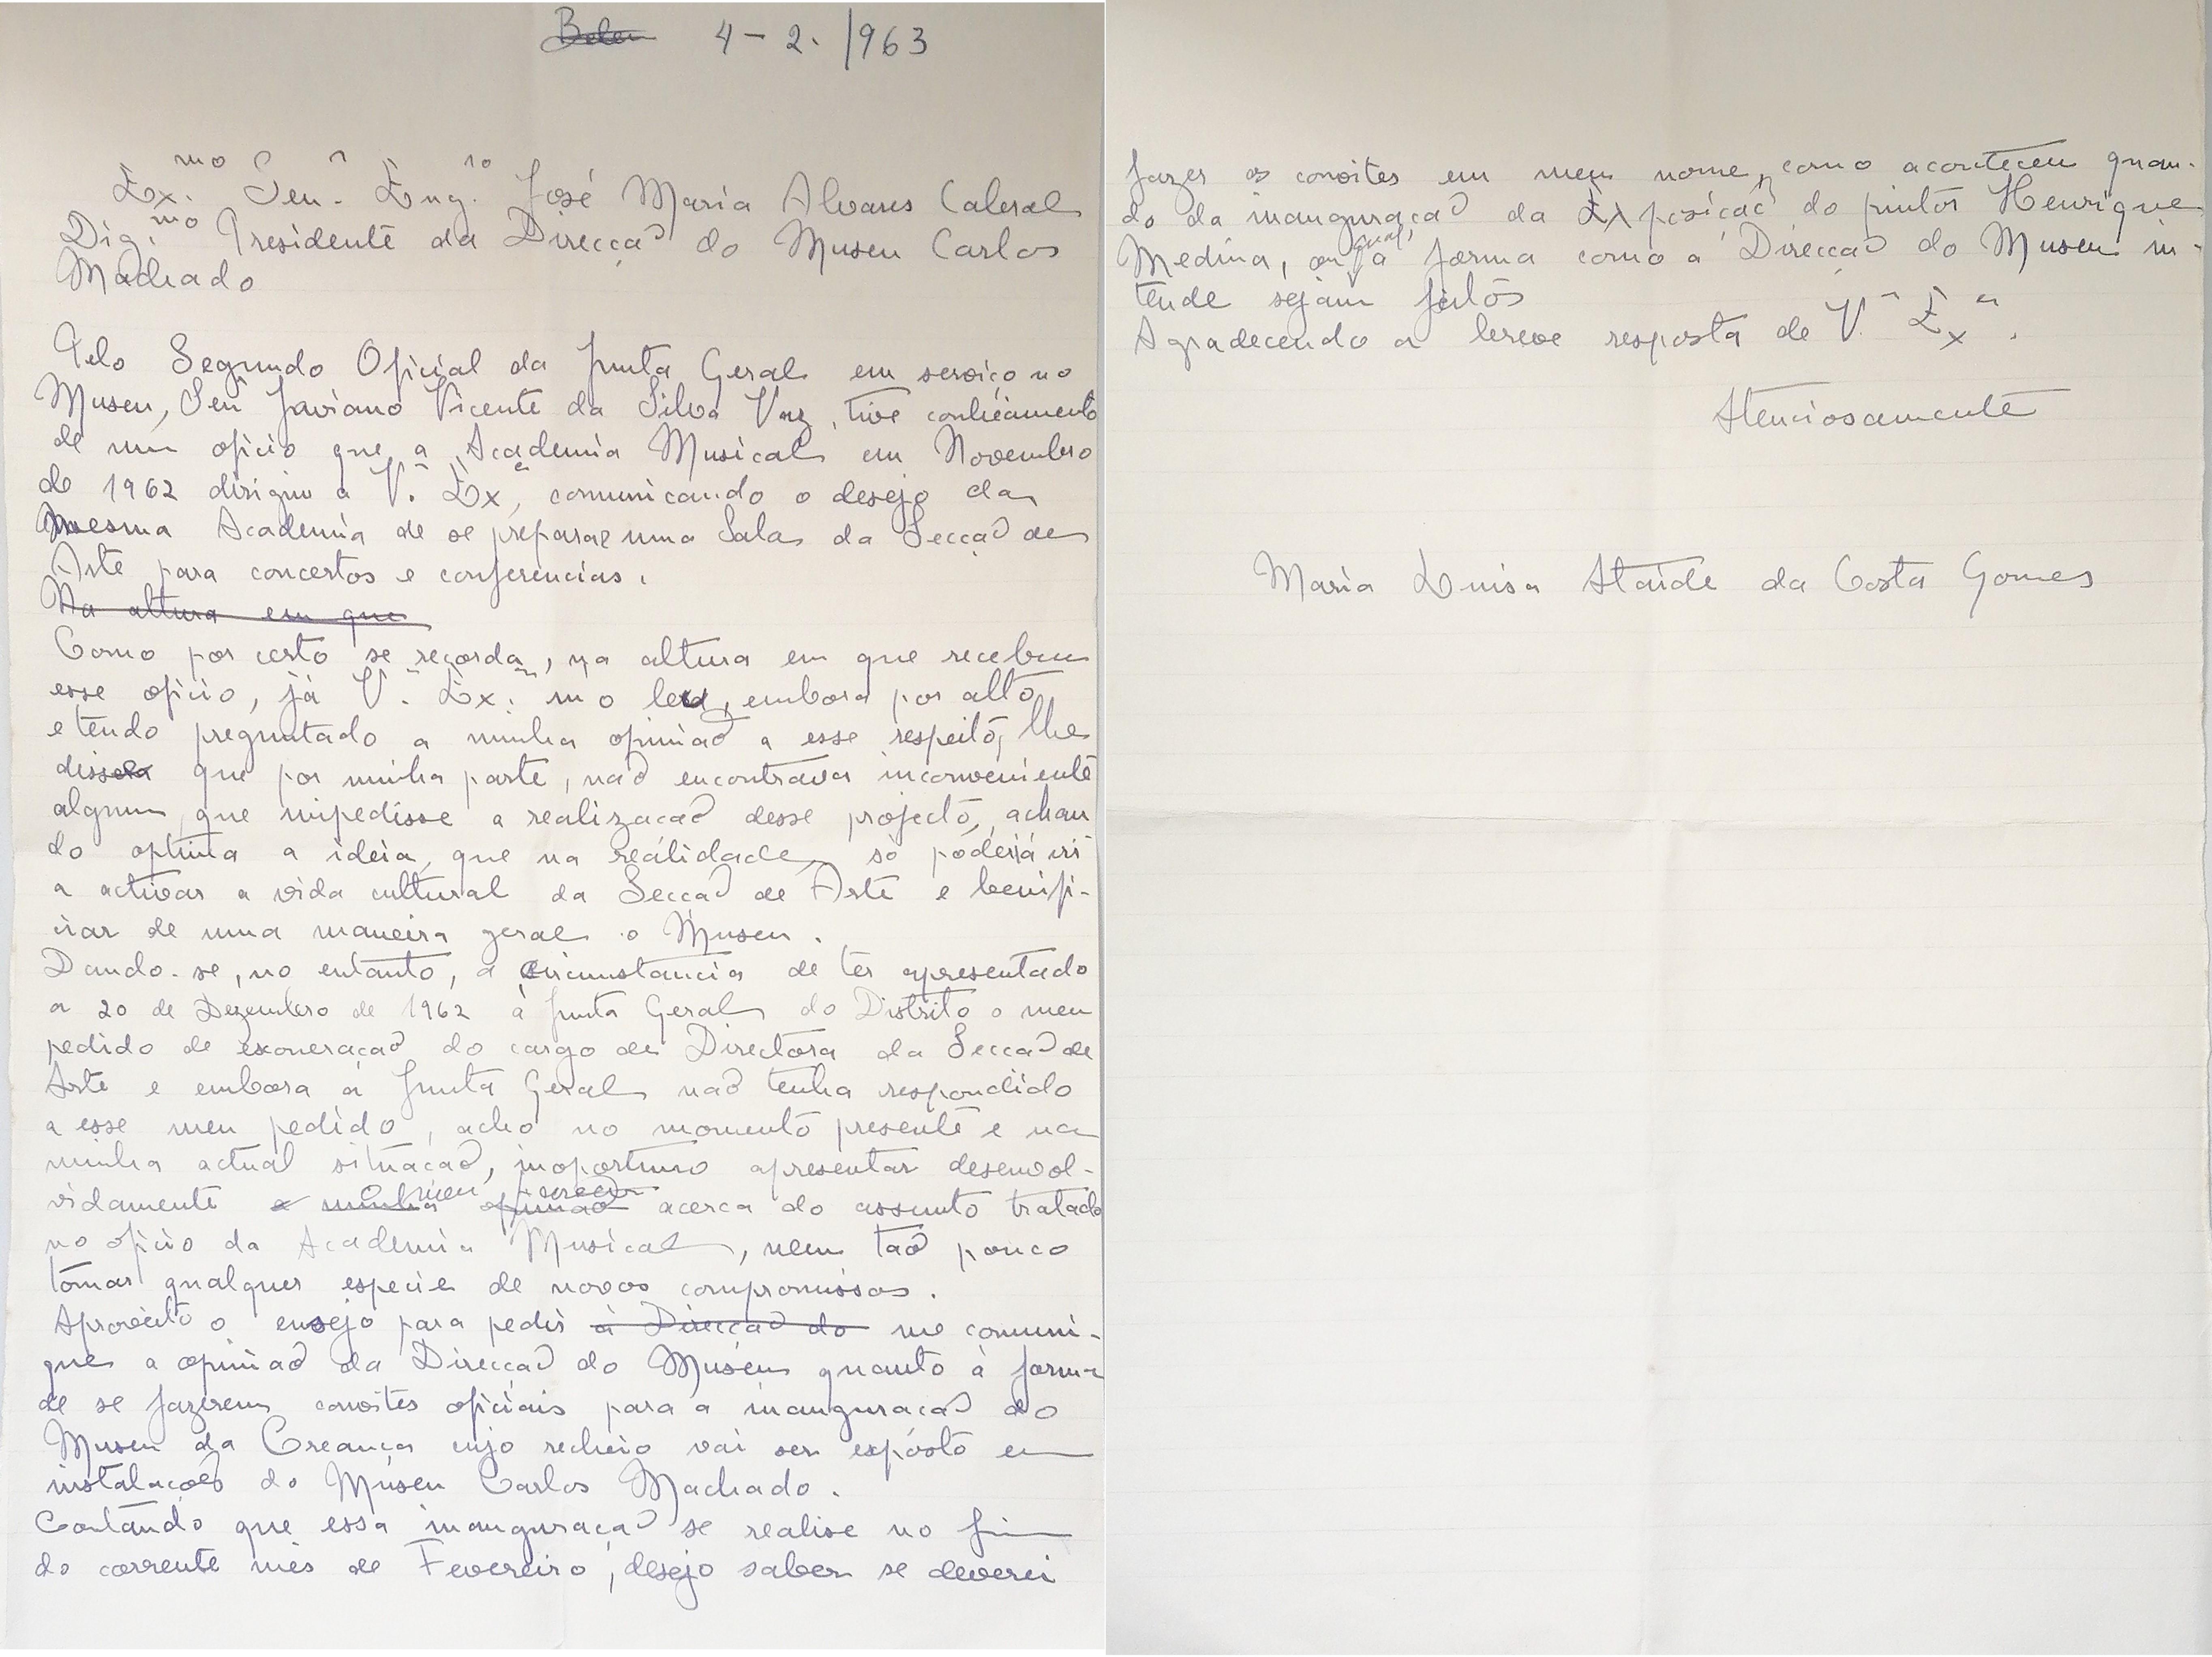 Belem 4-2.1963
Ex.mo Senr Engro José Maria Alvares Cabral
Dig.mo Presidente da Direcção do Museu Carlos
Machado
Pelo Segundo Oficial da Junta Geral em serviço no
Museu, Senr Vicente da Silva Vaz, tive conhecimento
de um oficio que a Academia Musical em Novembro
de 1962 dirigiu a V.a Ex.a, comunicando o desejo da
mesma Academia de se preparar uma Sala da Secção de
Arte para concertos e conferencias.
Na altura em que
Como por certo se recorda, na altura em que recebeu
esse oficio, já V.a Ex.a m o leu, embora por alto
e tendo preguntado a minha opinião a esse respeito, lhe
disse que por minha parte, não encontrava inconveniente
algum que impedisse a realização desse projecto, achan
do optima a ideia, que na realidade, só poderá vir
a activar a vida cultural da Secção de Arte e benifi-
ciar de uma maneira geral o Museu.
Dando-se, no entanto, a circunstancia de ter apresentado
a 20 de Dezembro de 1962 à Junta Geral do Distrito o meu
pedido de exoneração do cargo de Directora da Secção de
Arte e embora a Junta Geral não tenha respondido
a esse meu pedido, acho no momento presente e na
minha actual situação, inoportuno apresentar desenvol-
vidamente a minha opinião o meu parecer acerca do assunto tratado
no oficio da Academia Musical, nem tão pouco
tomar qualquer especie de novos compromissos.
Aproveito o ensejo para pedir à Direcção do me comuni-
que a opinião da Direcção do Museu quanto à forma
de se fazerem convites oficiais para a inauguração do
Museu da Creança cujo recheio vai ser exposto em
instalações do Museu Carlos Machado.
Contando que essa inauguração se realise no fim
do corrente mês de Fevereiro, desejo saber se deverei
fazer os convites em meu nome, como aconteceu quan-
do da inauguração da Exposição do pintor Henrique
Medina, ou qual, a forma como a Direcção do Museu in-
tende sejam feitos
Agradecendo a breve resposta de V.a Ex.a.
Atenciosamente
Maria Luisa Ataide da Costa Gomes